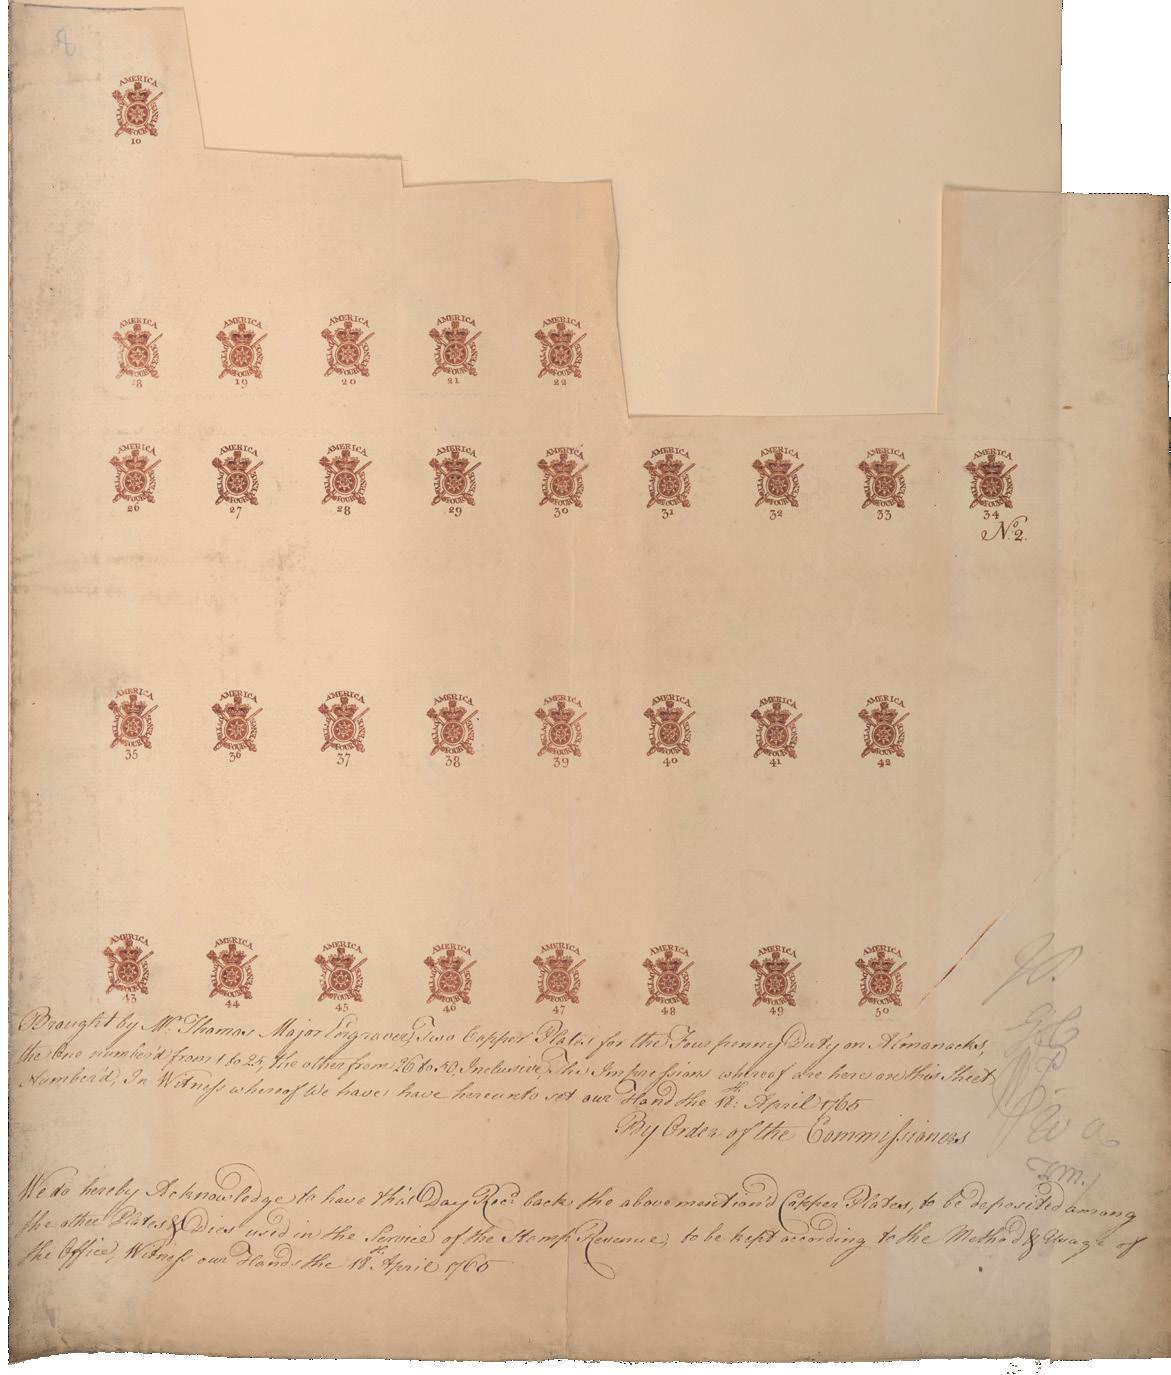 AMERICA
10
AMERICA AMERICA AMERICA AMERICA AMERICA
18 19 20 21 22
AMERICA AMERICA AMERICA AMERICA AMERICA AMERICA AMERICA AMERICA AMERICA
26 27 28 29 30 31 32 33 34
No. 2.
AMERICA AMERICA AMERICA AMERICA AMERICA AMERICA AMERICA AMERICA
35 36 37 38 39 40 41 42
AMERICA AMERICA AMERICA AMERICA AMERICA AMERICA AMERICA AMERICA
43 44 45 46 47 48 49 50
Brought by Mr. Thomas Major Engraver, Two Copper Plates for the Four penny Duty on Almanacks,
the One number'd from 1 to 25, the other from 26 to 50 Inclusive, The Impressions whereof are here on this Sheet
Number'd, In Witness whereof We have have hereunto set our Hand the 18th. April 1765
By Order of the Commissioners
We do hereby Acknowledge to have this Day Recd. back the abovemention'd Copper Plates, to be deposited among
the other Plates & Dies used in the Service of the Stamp Revenue, to be kept according to the Method & Usage of
the Office, Witness our Hands the 18th. April 1765